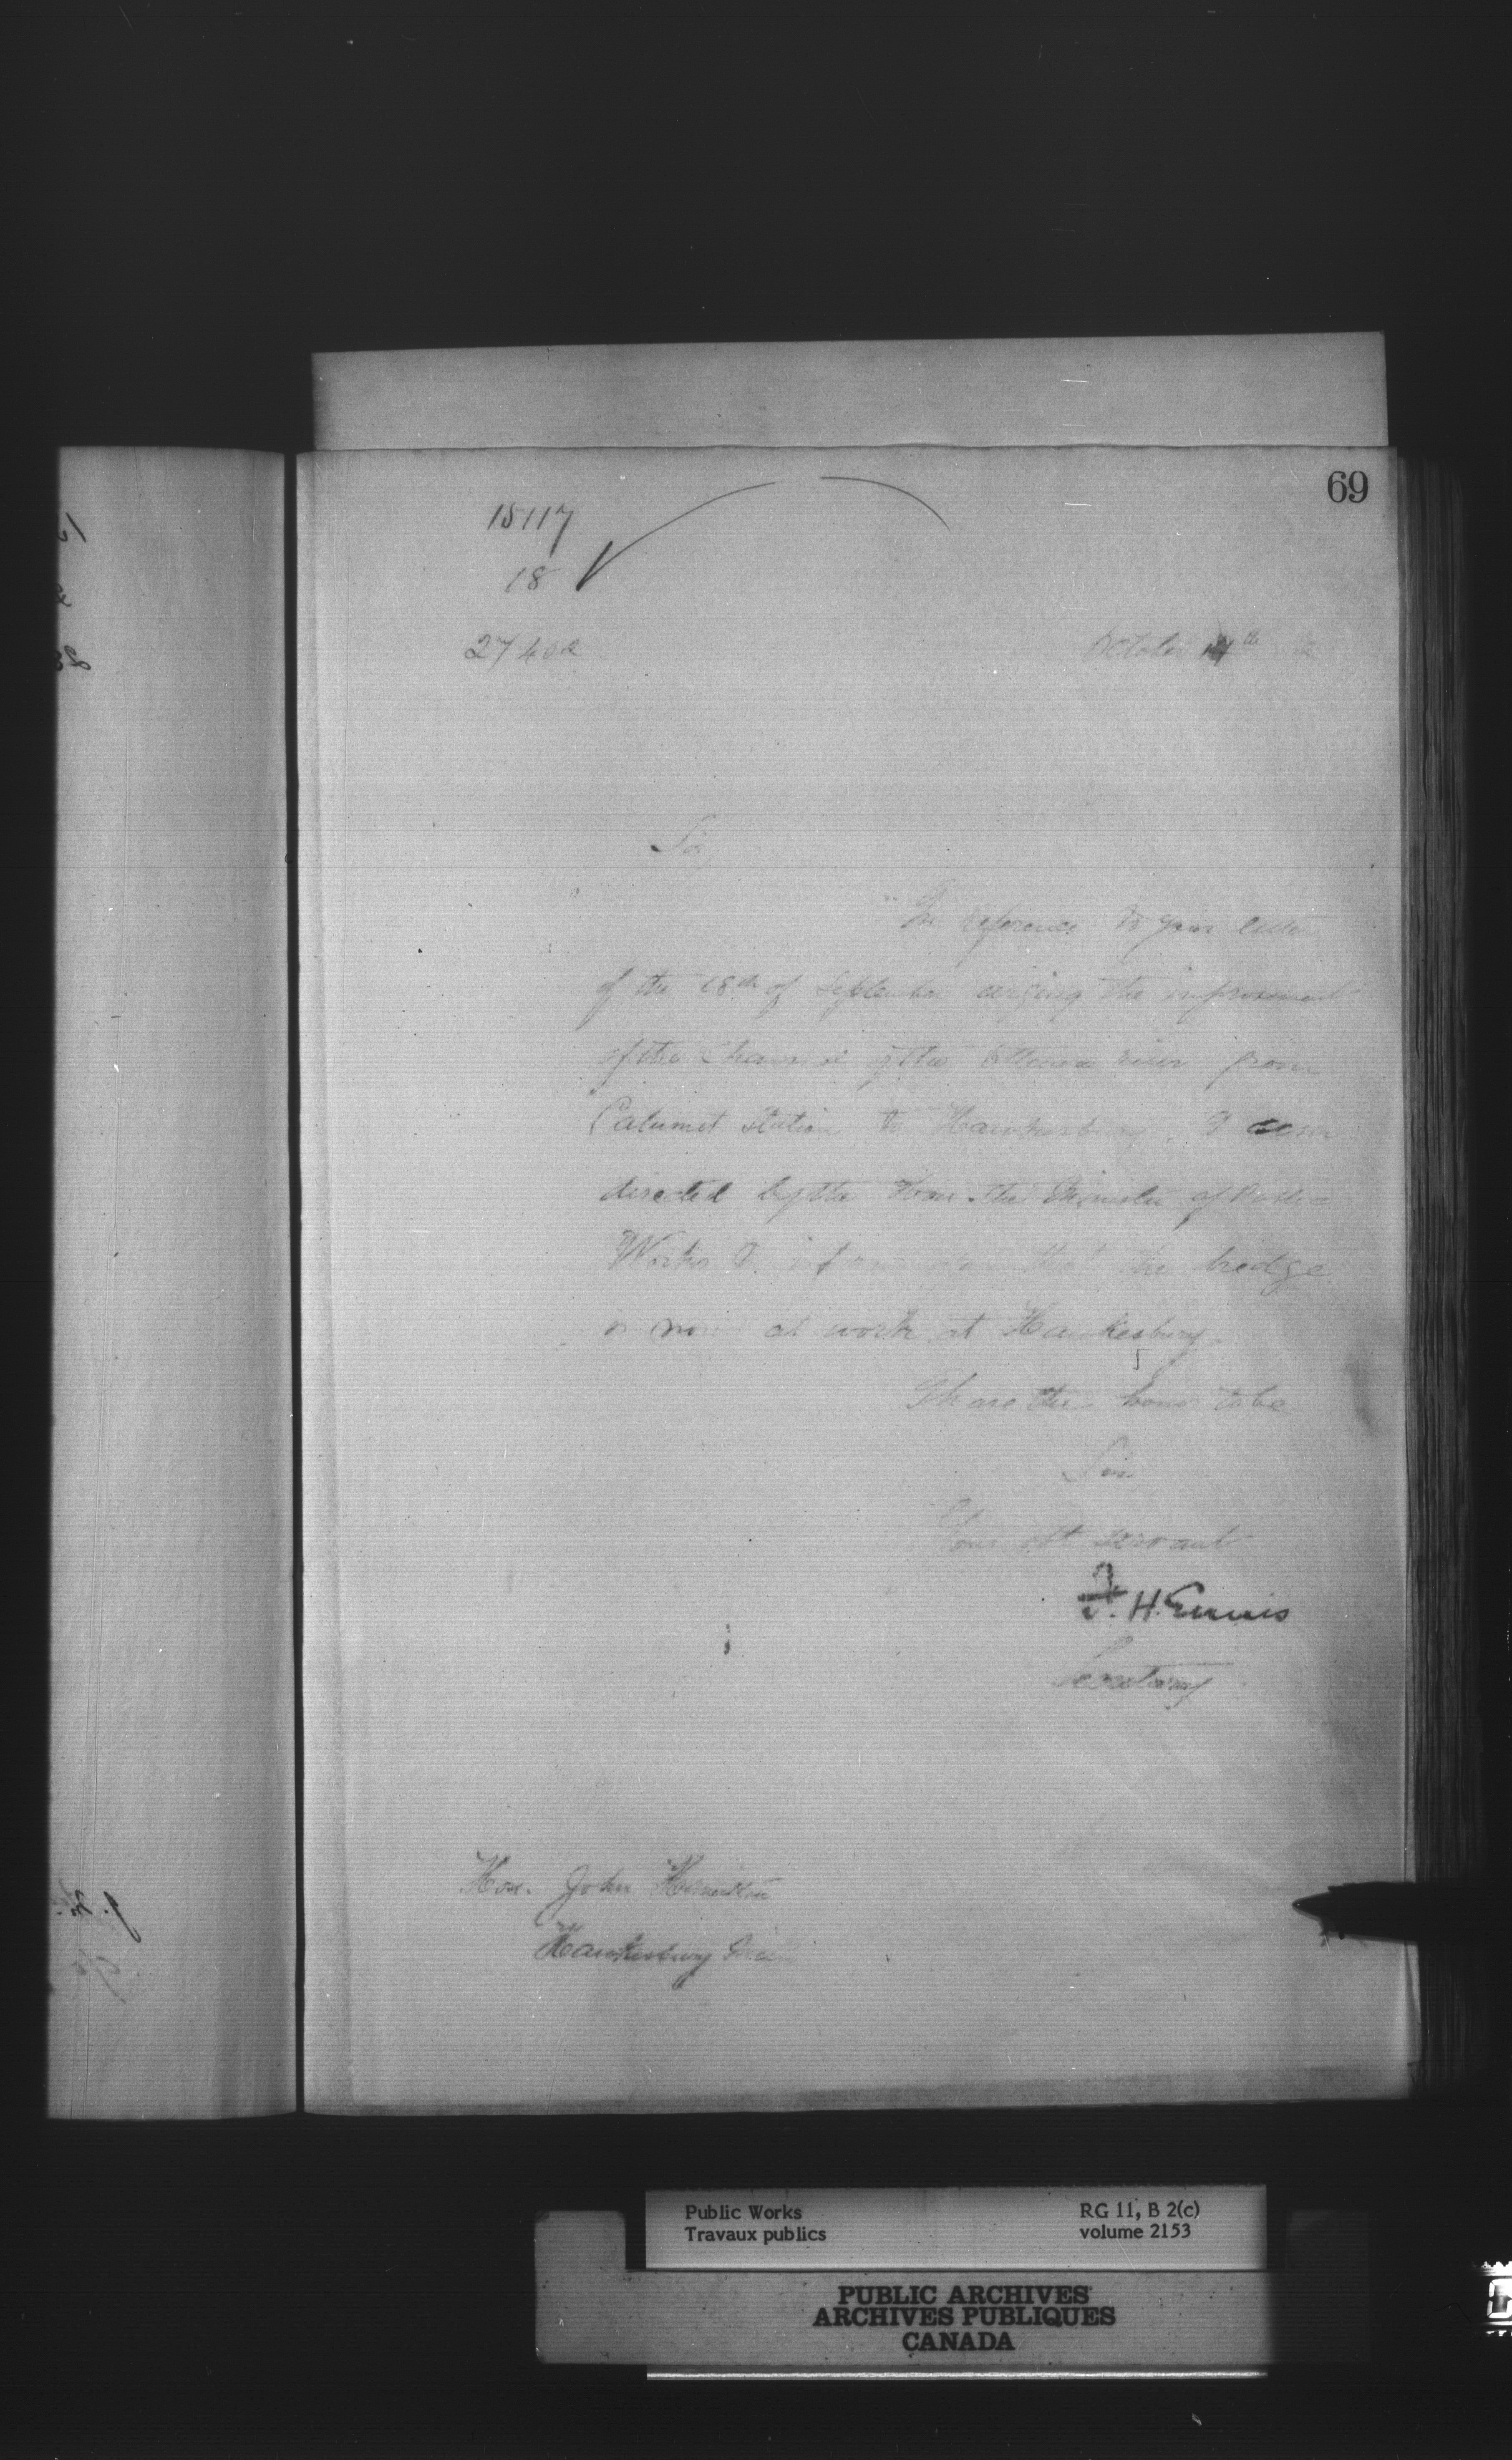 69
15117
18
October 14th
Sir,
In reference to your letter
of the 18th of September urging the improvement
of the Channel of the Ottawa river from
Calumet Station to Hawkesbury. I am
directed by the Hon. the Minister of Public
Works to inform you that the dredge
is now at work at Hawkesbury.
I have the honor to be
Sir
Your obt servant
F. H. Ennis
Secretary
Hon. John Hamilton
Hawkesbury
Public Works
Travaux publics
RG 11, B 2(c)
volume 2153
PUBLIC ARCHIVES
ARCHIVES PUBLIQUES
CANADA